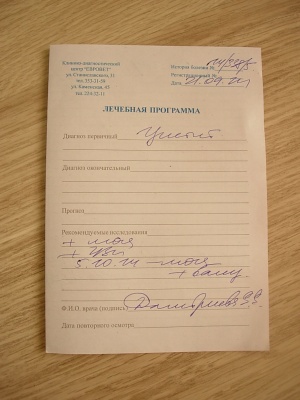 Клинико-диагностический
центр "ЕВРОВЕТ"
ул. Станиславского, 31
тел. 252-21-59
ул. Киевская, 43
тел. 224-32-11
История болезни №
Регистрационный №
Дата 21.09.
ЛЕЧЕБНАЯ ПРОГРАММА
Диагноз первичный Цистит
Диагноз окончательный
Прогноз
Рекомендуемые исследования
+ моча
+ УЗИ
5.10.14 - моча
Ф.И.О. врача (подпись)
Дата повторного осмотра